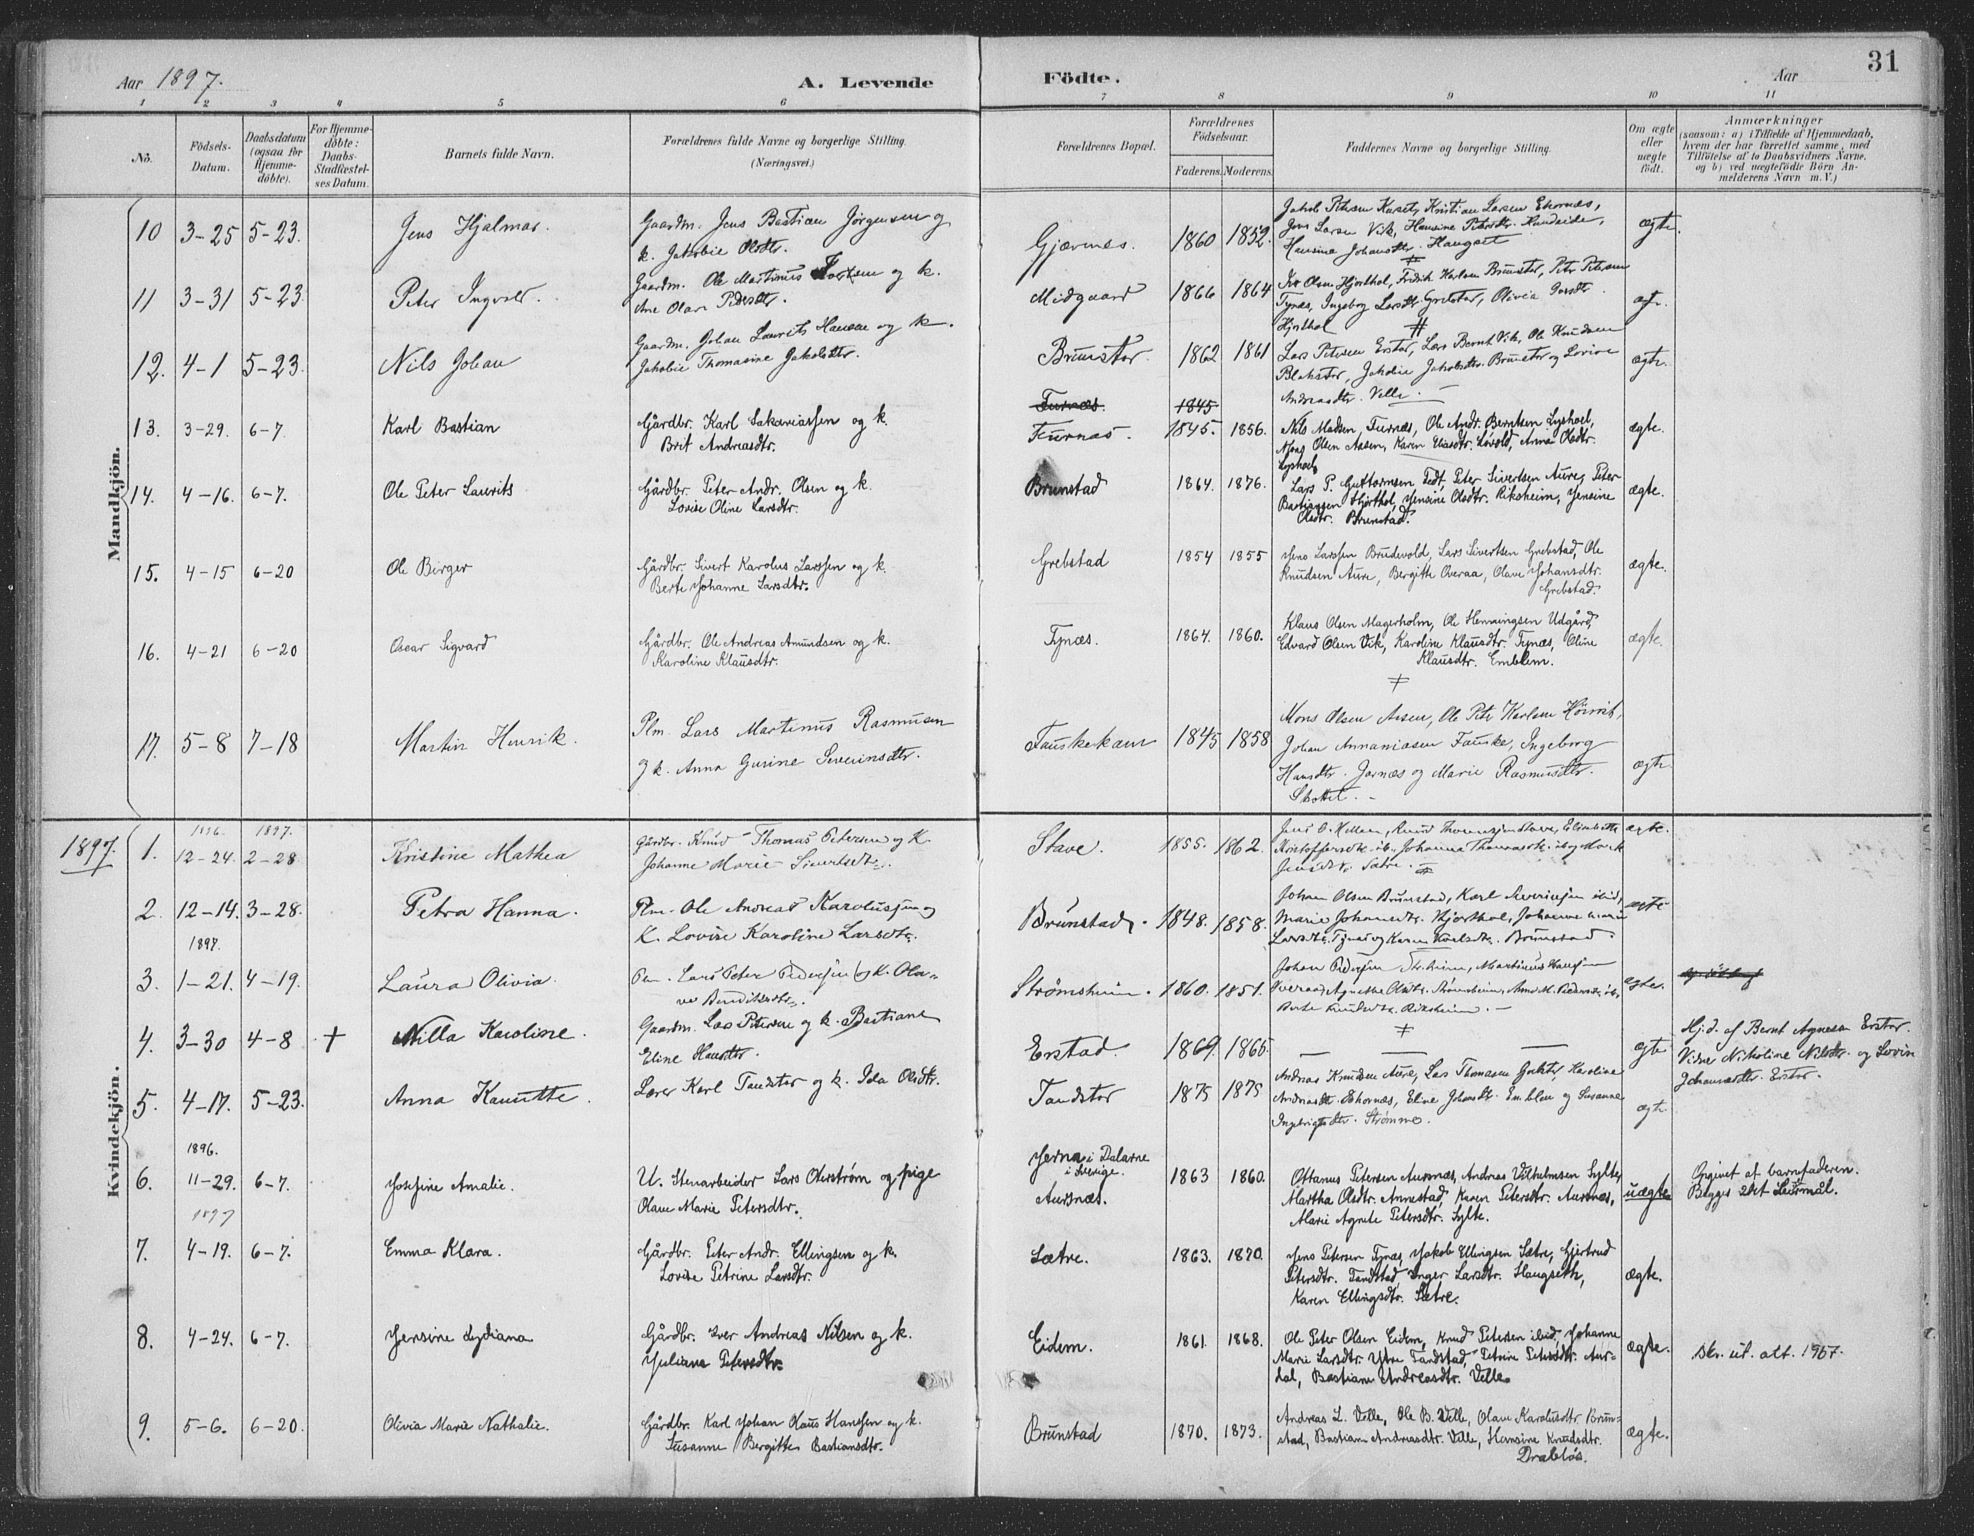 Aar 1897.
A. Levende
Födte.
Aar
31
1 2 3 4 5 6 7 8 9 10 11
No.
Födsels-Datum.
Daabsdatum (ogsaa for Hjemme-döbte).
For Hjemme-döbte: Daabs-Stadfæstel-ses Datum.
Barnets fulde Navn.
Forældrenes fulde Navne og borgerlige Stilling.
(Næringsvei.)
Forældrenes Bopæl.
Forældrenes Födselsaar.
Faderens. Moderens.
Faddernes Navne og borgerlige Stilling.
Om ægte eller uægte födt.
Anmærkninger
(saasom: a) i Tilfælde af Hjemmedaab,
hvem der har forrettet samme, med
Tilföielse af to Daabsvidners Navne,
og b) ved uægtefödte Börn An-
melderens Navn m. V.)
Mandkjön.
10 3-25 5-23. Jens Hjalmar. Gaardm. Jens Bastian Jørgensen og
k. Jakobie Olsdtr. Gjævnes. 1860 1852. ægte.
Jens Larsen Vik, Hansine Petersdtr.
Hansine Johansdtr. Haugset
11 3-31 5-23. Peter Ingvald. Gaardm. Ole Martinus og k.
Ane Olava Pedersdtr. Midgaard 1866 1864 Ole Olsen Hjorthol, Fredrik Karlsen Brunstad, Peter Petersen
Tynæs, Ingeborg Larsdtr. Grebstad, Olivia
Hjorthol
12. 4-1 5-23. Nils Johan Gaardm. Johan Laurits Hansen og k.
Jakobie Thomasine Jakobsdtr. Brunstad. 1862 1861 Lars Petersen Erstad, Lars Bernt Vik, Ole Knudsen
Blakstad, Jakobie Jakobsdtr. Brunstad og Lovise
Andreasdtr. Velle. ægte.
Furnæs. 1845
13. 3-29. 6-7. Karl Bastian Gårdbr. Karl Sakariassen og k.
Brit Andreasdtr. Furnæs. 1845. 1856. Nils Madsen, Furnæs, Ole Andr. Berntsen Lyshoel,
Mons Olsen Aasen, Karen Eliasdtr. Løvold, Anna Olsdtr.
Lyshoel ægte.
14. 4-16. 6-7. Ole Peter Laurits Gårdbr. Peter Andr. Olsen og k.
Lovise Oline Larsdtr. Brunstad 1864. 1876. Lars P. Guttormsen Tedt, Peter Sivertsen Aure, Peter
Bastiansen Hjorthol, Jensine Olsdtr. Riksheim, Jensine
Olsdtr. Brunstad. ægte.
15. 4-15 6-20 Ole Birger Gårdbr. Sivert Karolus Larssen og k.
Berte Johanne Larsdtr. Grebstad 1854 1855 Jens Larssen Brudevold, Lars Sivertsen Grebstad, Ole
Knudsen Aure, Bergitte Overaa, Olave Johansdtr.
Grebstad. ægte.
16. 4-21 6-20 Oscar Sigvard Gårdbr. Ole Andreas Amundsen og k.
Karoline Klausdtr. Tynæs. 1864. 1860. Klaus Olsen Magerholm, Ole Henningsen Udgård,
Edvard Olsen Vik, Karoline Klausdtr. Tynæs, Oline
Klausdtr. Emblem. ægte.
17. 5-8 7-18 Martin Henrik. Plm. Lars Martinus Rasmusen
og k. Anna Gurine Severinsdtr. Fauskekam 1845 1858 Mons Olsen Aasen, Ole Peter Karlsen
Johan Annaniasen Fauske, Ingeborg
Hansdtr. Jarnæs og Marie Rasmusdtr.
Skottet. ægte.
Kvindekjön.
1897. 1. 1896. 12-24. 1897. 2-28 Kristine Mathea Gårdbr. Knud Thomas Petersen og K.
Johanne Marie Sivertsdtr. Stave. 1855. 1862. ægte.
2. 12-14. 3-28. Petra Hanna. Plm. Ole Andreas Karolussen og
K. Lovise Karoline Larsdtr. Brunstad. 1848. 1858. Johan Olsen Brunstad, Karl Severinsen ibid,
Marie Johansdtr. Hjorthol, Johanne Marie
Larsdtr. Tynæs og Karen Brunstad. ægte
1897.
3. 1-21. 4-19. Laura Olivia. Plm. Lars Peter Pedersen og K. Ola-
ve Bendiksdtr. Strømsheim. 1860. 1851. ægte.
4. 3-30 4-8 + Nilla Karoline. Gaardm. Lars Petersen og k. Bastiane
Eline Hansdtr. Erstad. 1869 1865. ægte Hj.d. af Bernt Agnesen Erstad.
Vidner Nikoline Nilsdtr. og Lovise
Johansdtr. Erstad.
5. 4-17. 5-23. Anna Kanutte. Lærer Karl Tandstad og k. Ida Olsdtr. Tandstad 1875 1875 Andreas Knudsen Aure, Lars Thomasen Karoline
Andreasdtr. Ekornæs, Eline Johansdtr. Emblem og Susanne
Ingebrigtsdtr. Strømme. ægte
1896.
6. 11-29. 6-7. Josefine Amalie. U. Stenarbeider Lars Olerström og pige
Olave Marie Petersdtr. Jerna i Dalarne
i Sverige.
Aursnæs. 1863 1860. Ottanus Petersen Aursnæs, Andreas Vilhelmsen Sylte,
Martha Olsdtr. Annestad, Karen Petersdtr. Aursnæs,
Marie Agnete Petersdtr. Sylte. uægte Opgivet af barnefaderen.
Begges 2det Leiermål.
1897
7. 4-19. 6-7. Emma Klara. Gårdbr. Peter Andr. Ellingsen og k.
Lovise Petrine Larsdtr. Sætre. 1863. 1870. Jens Petersen Tynæs, Jakob Ellingsen Sætre, Gjertrud
Petersdtr. Tandstad, Inger Larsdtr. Haugseth,
Karen Ellingsdtr. Sætre. ægte.
8. 4-24. 6-7. Jensine Lydiana Gårdbr. Iver Andreas Nilsen og k.
Juliane Petersdtr. Eidem. 1861. 1868. Ole Peter Olsen Eidem, Knud Petersen ibid, Johanne
Marie Larsdtr. Ytre Tandstad, Petrine Petersdtr. Aur-
dal, Bastiane Andreasdtr. Velle. ægte. Skr. ut. att. 1967.
9. 5-6. 6-20. Olivia Marie Nathalie. Gårdbr. Karl Johan Klaus Hanssen og k.
Susanne Bergitte Bastiansdtr. Brunstad 1870. 1873. Andreas L. Velle, Ole B. Velle, Olave Karolusdtr. Brun-
stad, Bastiane Andreasdtr. Velle, Hansine Knudsdtr.
Drabløs. ægte.